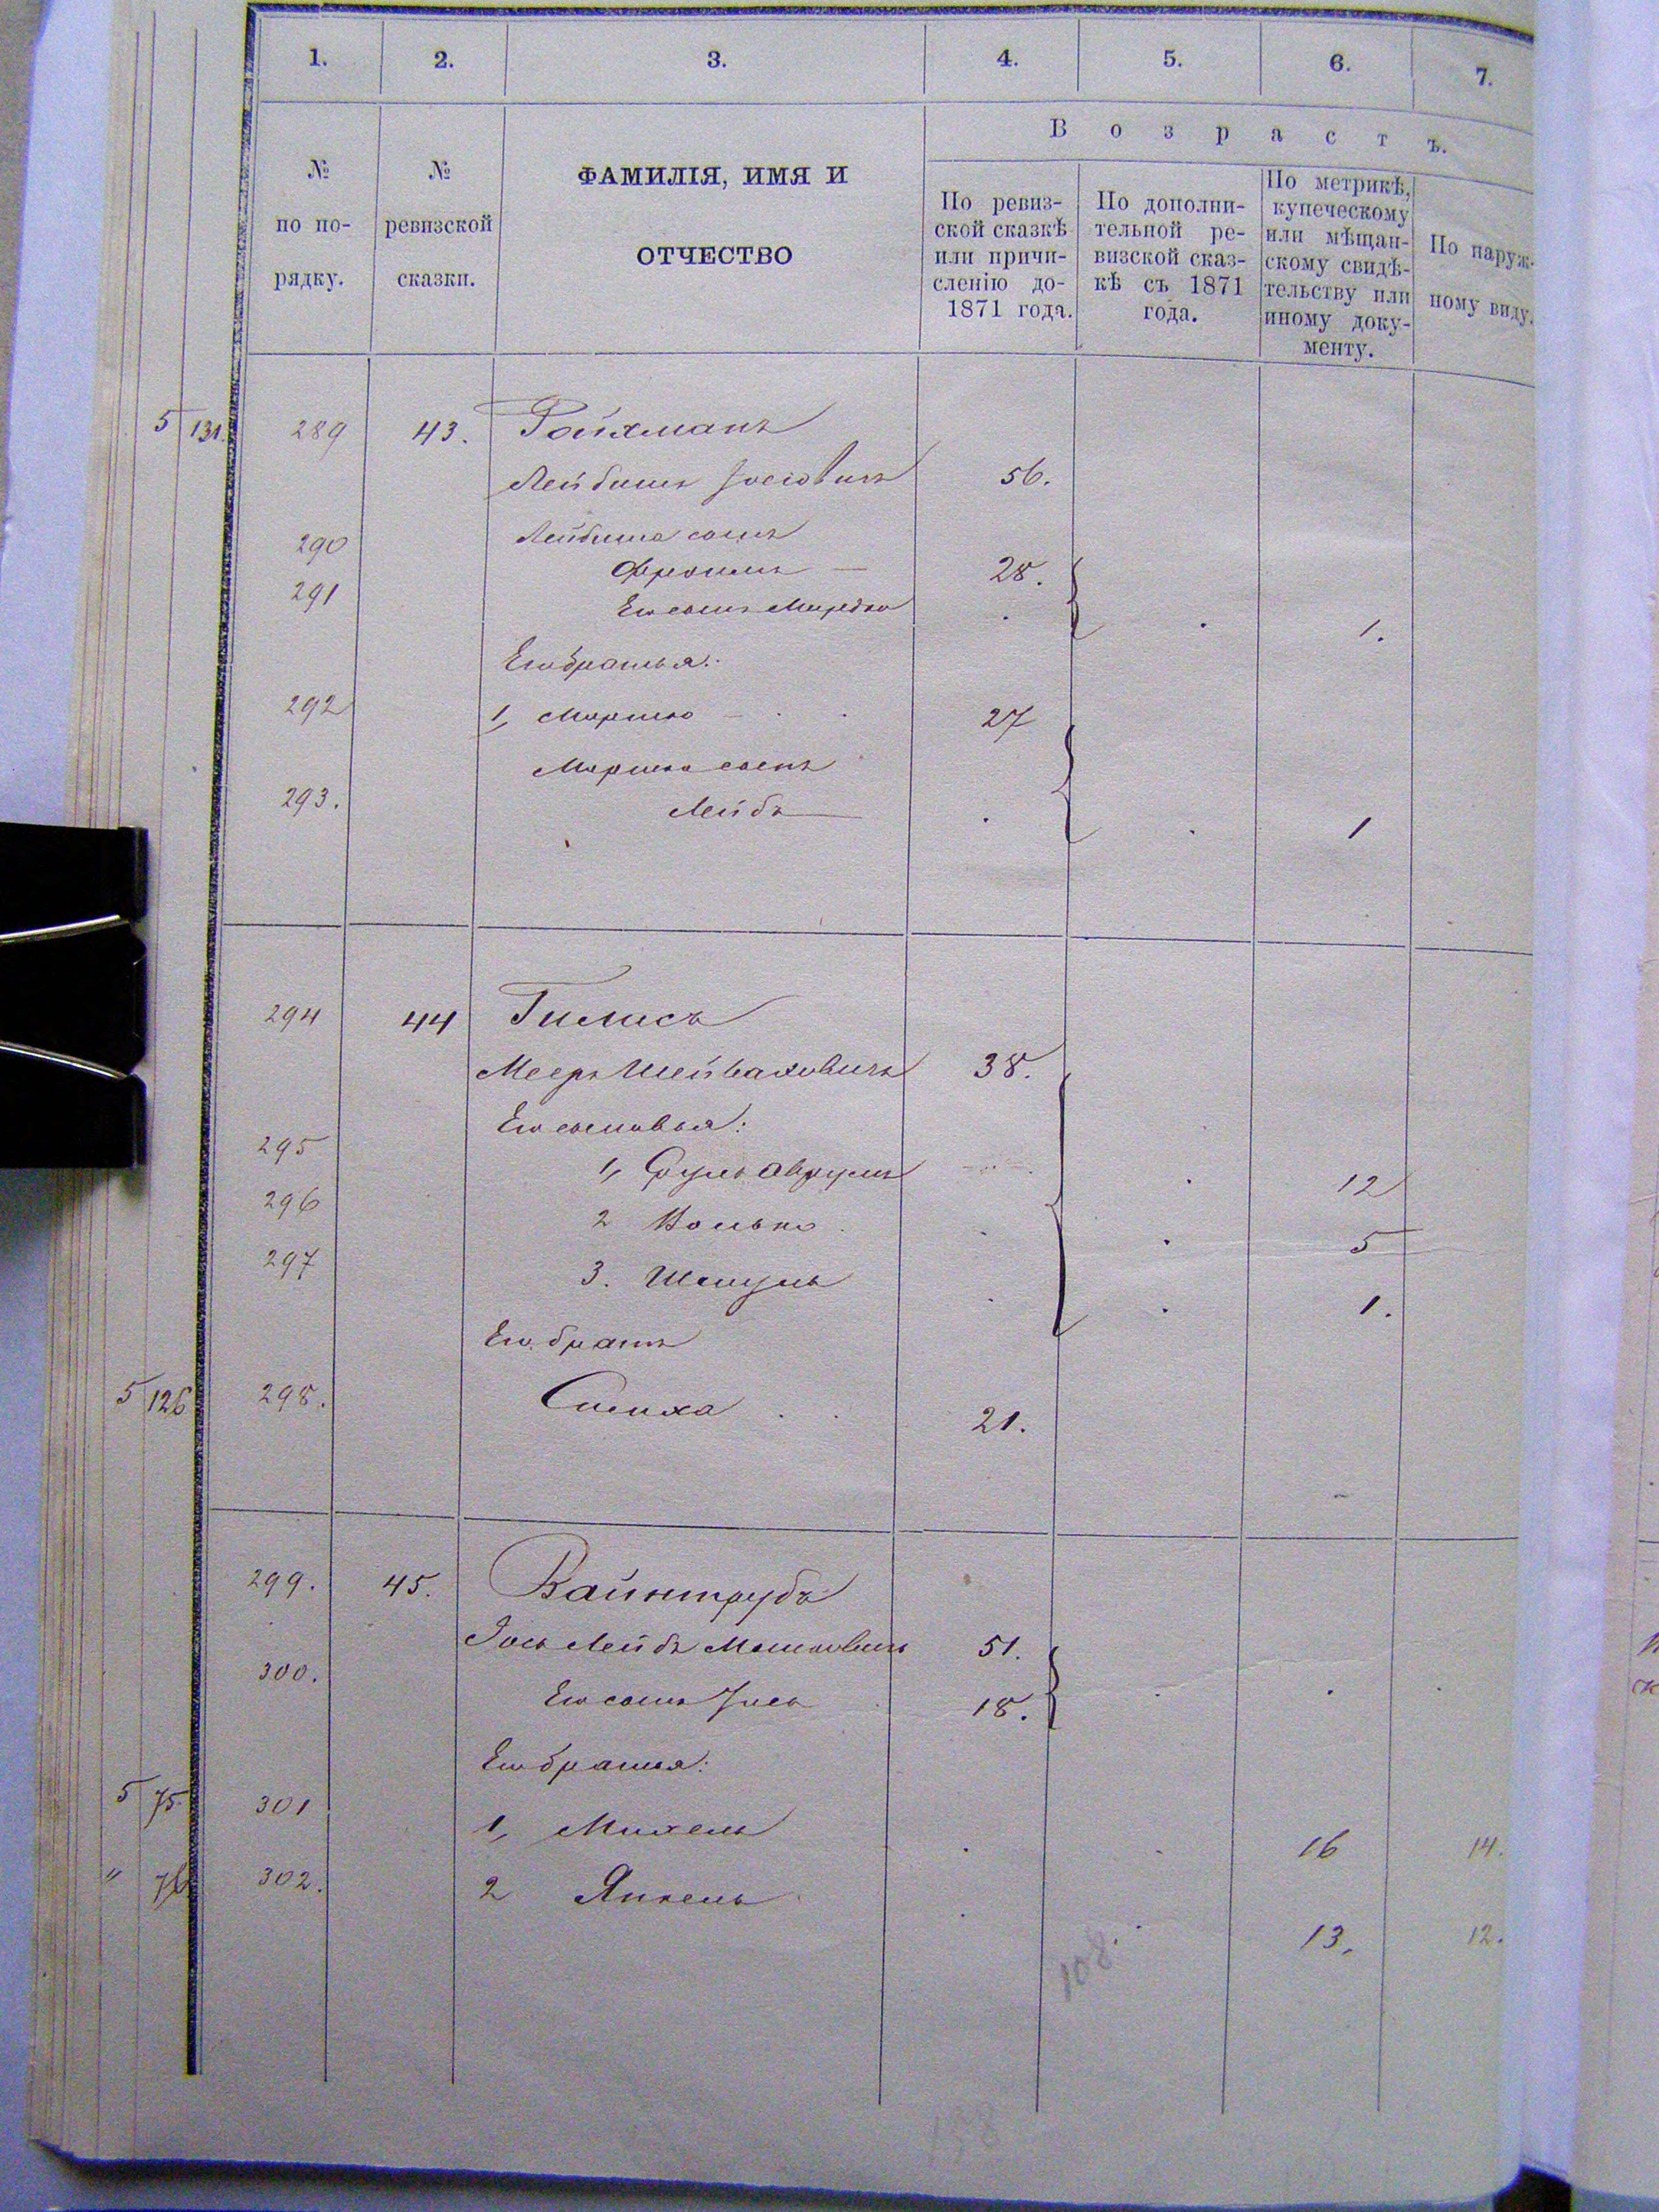 1. 2. 3. 4. 5. 6. 7.
№ по по-рядку.
№ ревизской сказки.
ФАМИЛІЯ, ИМЯ И
ОТЧЕСТВО
Возрастъ.
По ревиз-
ской сказкѣ
или причи-
сленію до-
1871 года.
По дополни-
тельной ре-
визской сказ-
кѣ съ 1871
года.
По метрикѣ,
купеческому
или мѣщан-
скому свидѣ-
тельству или
иному доку-
менту.
По наруж-
ному виду.
5 131. 289 43. Ройхманъ
Лейбишъ Іосіовичъ 56.
290 Лейбиша сынъ
Фроимъ 28.
291 Его сынъ 1.
Его братья:
292 1, Мошко 27
Мошка сынъ
293. Лейбъ 1
294 44 Гилисъ
Мееръ Шейваховичъ 38.
Его сыновья:
295 1, Сруль Аврумъ 12
296 2 Волько 5
297 3. Шмуль 1.
Его братъ
5 126 298. Симха 21.
299. 45. Вайнтрубъ
Іось Лейбъ Мошковичъ 51.
300. Его сынъ 18.
Его братья:
5 75. 301 1, Михель 16 14.
" 76 302. 2 Янкель 13. 12.
108.
158